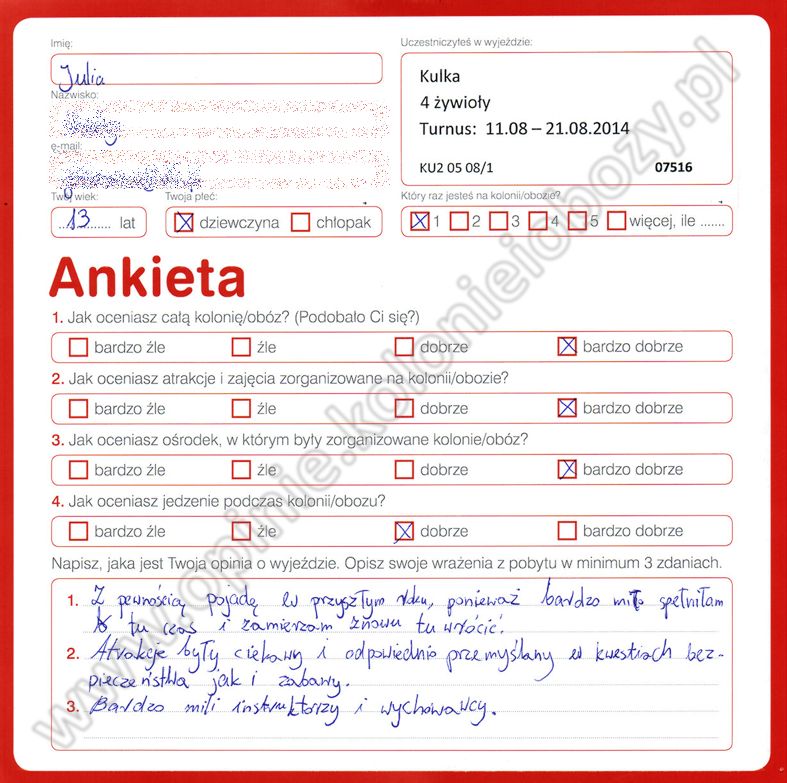 Imię:
Julia
Nazwisko:
e-mail:
Twój wiek:
13 lat
Twoja płeć:
dziewczyna chłopak
Uczestniczyłeś w wyjeździe:
Kulka
4 żywioły
Turnus: 11.08 – 21.08.2014
KU2 05 08/1 07516
Który raz jesteś na kolonii/obozie?
1 2 3 4 5 więcej, ile .......
Ankieta
1. Jak oceniasz całą kolonię/obóz? (Podobało Ci się?)
bardzo źle źle dobrze bardzo dobrze
2. Jak oceniasz atrakcje i zajęcia zorganizowane na kolonii/obozie?
bardzo źle źle dobrze bardzo dobrze
3. Jak oceniasz ośrodek, w którym były zorganizowane kolonie/obóz?
bardzo źle źle dobrze bardzo dobrze
4. Jak oceniasz jedzenie podczas kolonii/obozu?
bardzo źle źle dobrze bardzo dobrze
Napisz, jaka jest Twoja opinia o wyjeździe. Opisz swoje wrażenia z pobytu w minimum 3 zdaniach.
1. Z pewnością pojadę w przyszłym roku, ponieważ bardzo miło spełniłam
tu czas i zamierzam znowu tu wrócić.
2. Atrakcje były ciekawy i odpowiednio przemyślany w kwestiach bez-
pieczeństwa jak i zabawy.
3. Bardzo mili instruktorzy i wychowawcy.
www.opinie.kolonieiobozy.pl